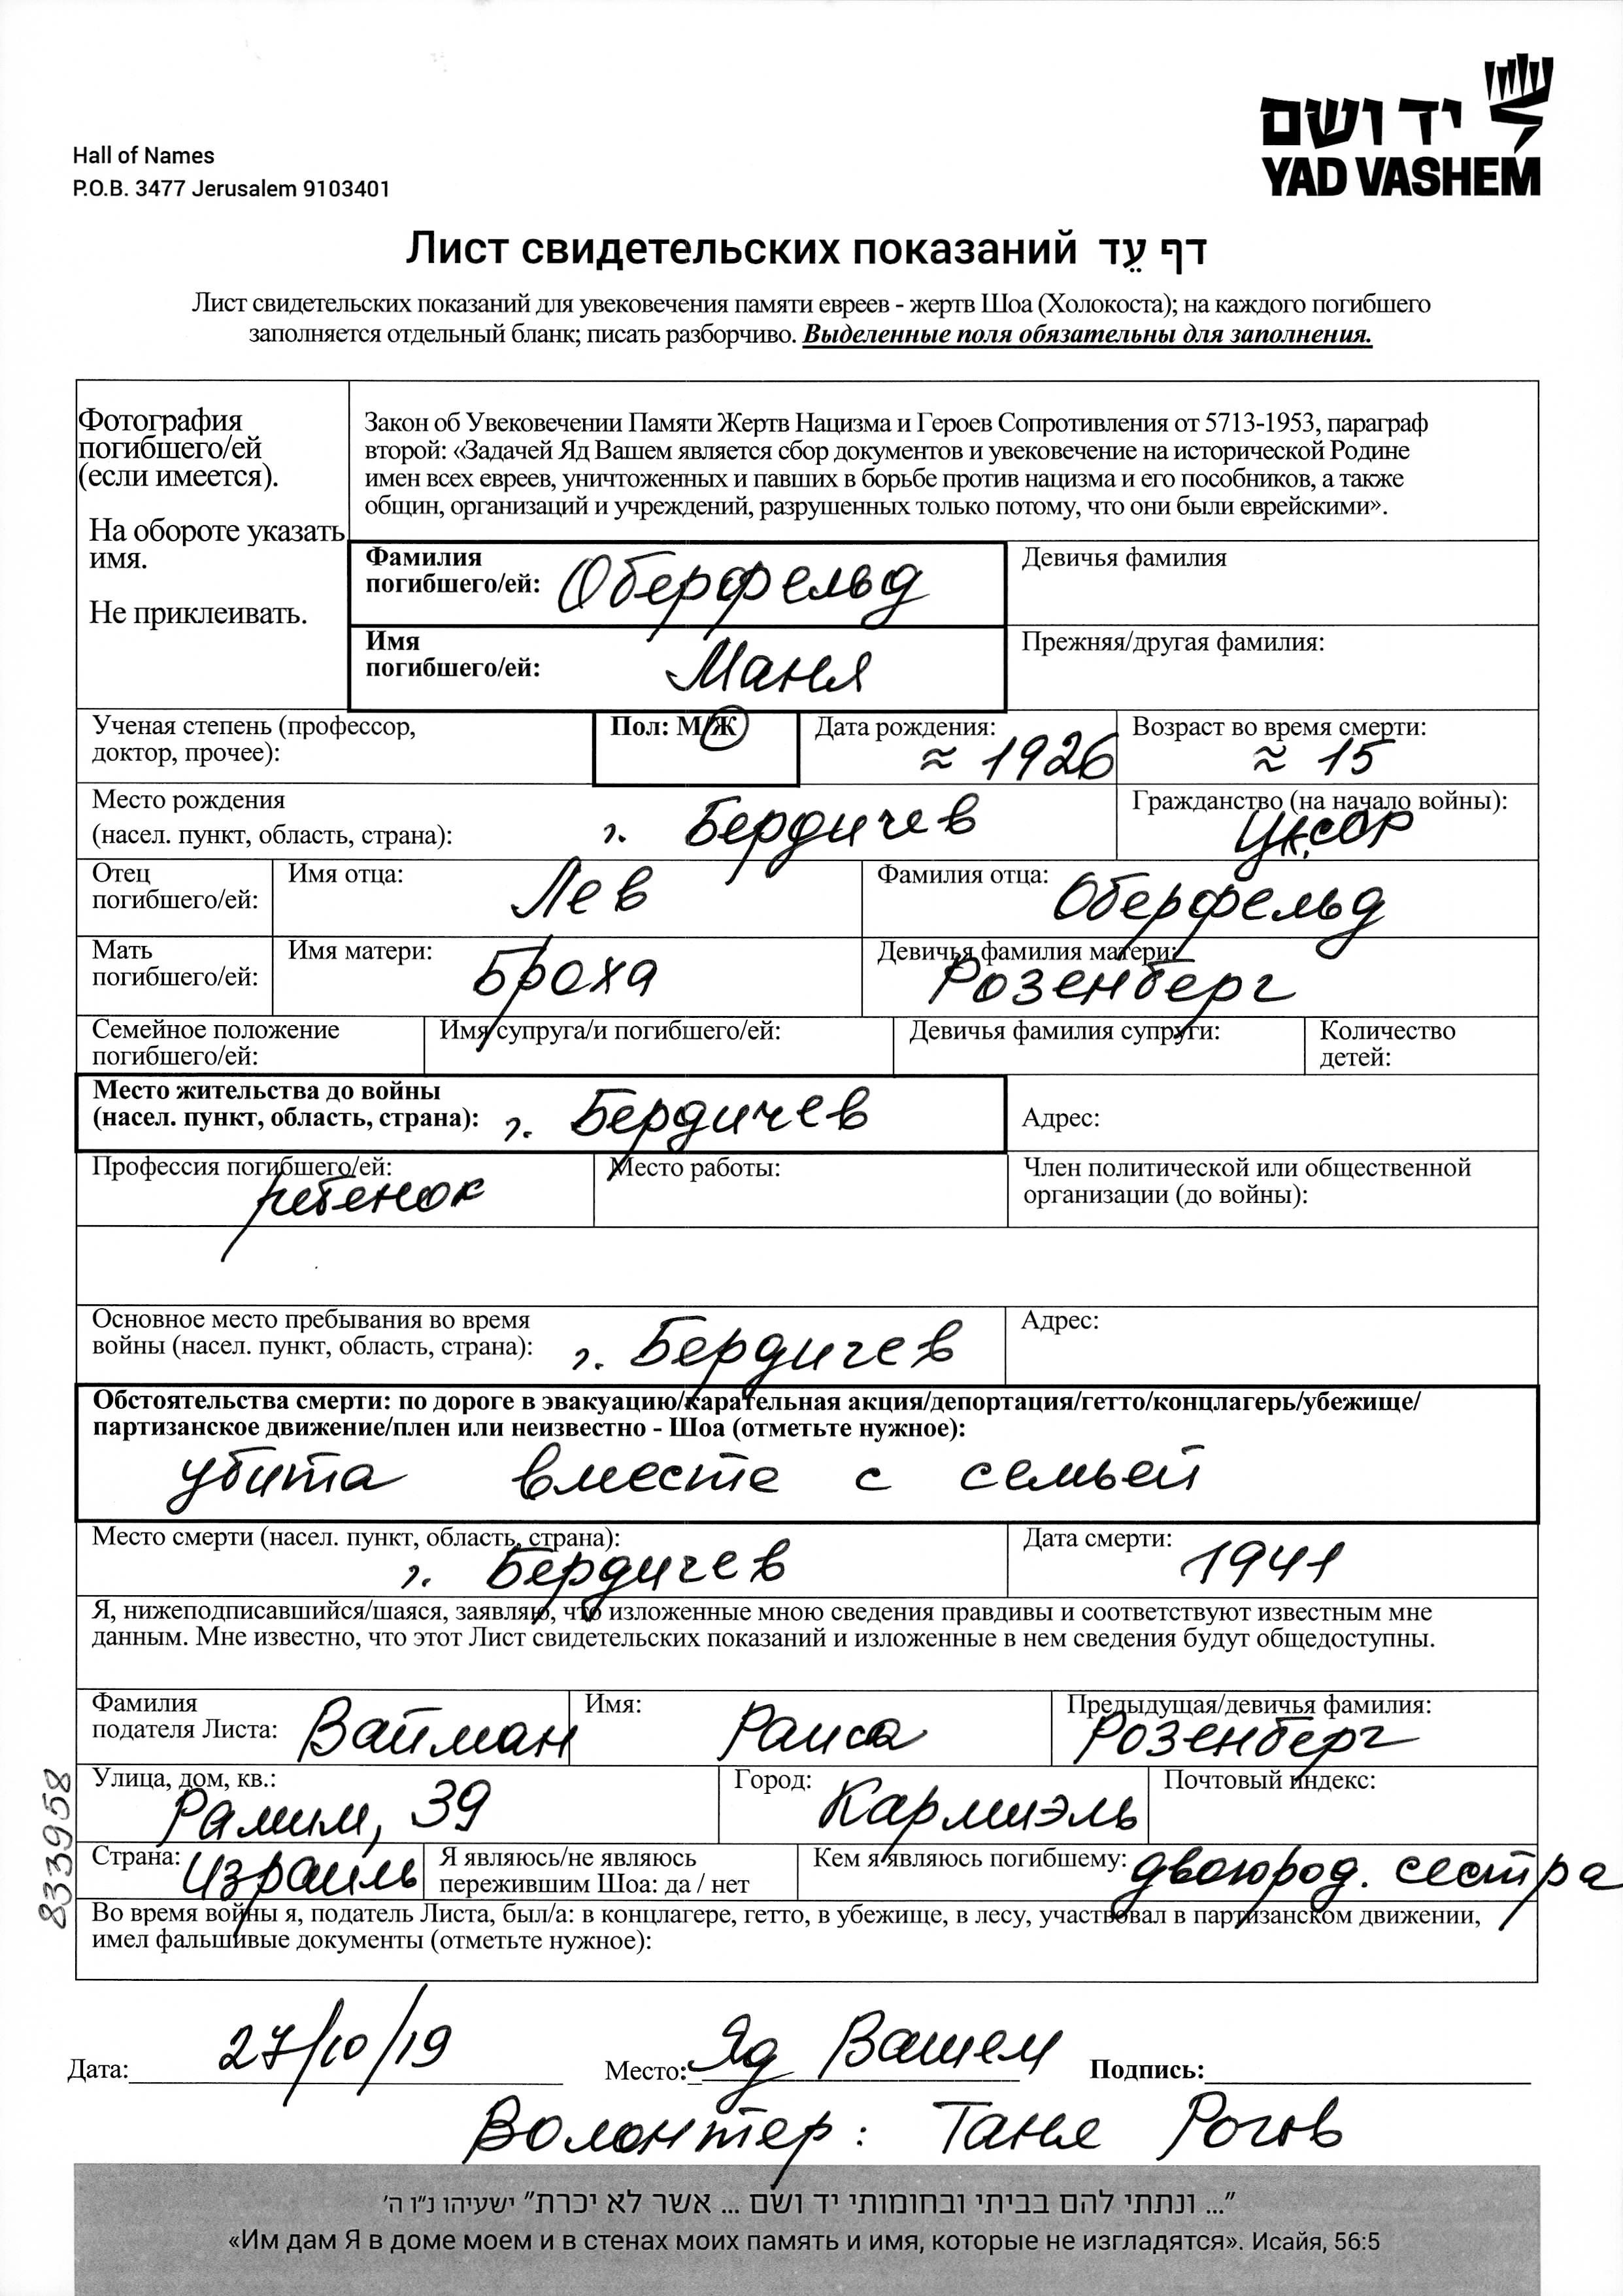 יד ושם
YAD VASHEM
Hall of Names
P.O.B. 3477 Jerusalem 9103401
Лист свидетельских показаний דף עֵד
Лист свидетельских показаний для увековечения памяти евреев - жертв Шоа (Холокоста); на каждого погибшего
заполняется отдельный бланк; писать разборчиво. Выделенные поля обязательны для заполнения.
Фотография
погибшего/ей
(если имеется).
На обороте указать
имя.
Не приклеивать.
Закон об Увековечении Памяти Жертв Нацизма и Героев Сопротивления от 5713-1953, параграф
второй: «Задачей Яд Вашем является сбор документов и увековечение на исторической Родине
имен всех евреев, уничтоженных и павших в борьбе против нацизма и его пособников, а также
общин, организаций и учреждений, разрушенных только потому, что они были еврейскими».
Фамилия
погибшего/ей: Оберфельд
Девичья фамилия
Имя
погибшего/ей: Маня
Прежняя/другая фамилия:
Ученая степень (профессор,
доктор, прочее):
Пол: М/Ж
Дата рождения:
≈ 1926
Возраст во время смерти:
≈ 15
Место рождения
(насел. пункт, область, страна): г. Бердичев
Гражданство (на начало войны):
Отец
погибшего/ей:
Имя отца: Лев
Фамилия отца: Оберфельд
Мать
погибшего/ей:
Имя матери: Броха
Девичья фамилия матери:
Розенберг
Семейное положение
погибшего/ей:
Имя супруга/и погибшего/ей:
Девичья фамилия супруги:
Количество
детей:
Место жительства до войны
(насел. пункт, область, страна): г. Бердичев
Адрес:
Профессия погибшего/ей:
ребенок
Место работы:
Член политической или общественной
организации (до войны):
Основное место пребывания во время
войны (насел. пункт, область, страна): г. Бердичев
Адрес:
Обстоятельства смерти: по дороге в эвакуацию/карательная акция/депортация/гетто/концлагерь/убежище/
партизанское движение/плен или неизвестно - Шоа (отметьте нужное):
убита вместе с семьей
Место смерти (насел. пункт, область, страна):
г. Бердичев
Дата смерти: 1941
Я, нижеподписавшийся/шаяся, заявляю, что изложенные мною сведения правдивы и соответствуют известным мне
данным. Мне известно, что этот Лист свидетельских показаний и изложенные в нем сведения будут общедоступны.
Фамилия
подателя Листа: Вайман
Имя: Раиса
Предыдущая/девичья фамилия:
Розенберг
Улица, дом, кв.:
Рамим, 39
Город: Кармиэль
Почтовый индекс:
Страна: Израиль
Я являюсь/не являюсь
пережившим Шоа: да / нет
Кем я являюсь погибшему: двоюрод. сестра
Во время войны я, податель Листа, был/а: в концлагере, гетто, в убежище, в лесу, участвовал в партизанском движении,
имел фальшивые документы (отметьте нужное):
833958
Дата: 27/10/19 Место: Яд Вашем Подпись:
Волонтер: Таня Рогов
"... ונתתי להם בביתי ובחומותי יד ושם ... אשר לא יכרת" ישעיהו נ"ו ה'
«Им дам Я в доме моем и в стенах моих память и имя, которые не изгладятся». Исайя, 56:5